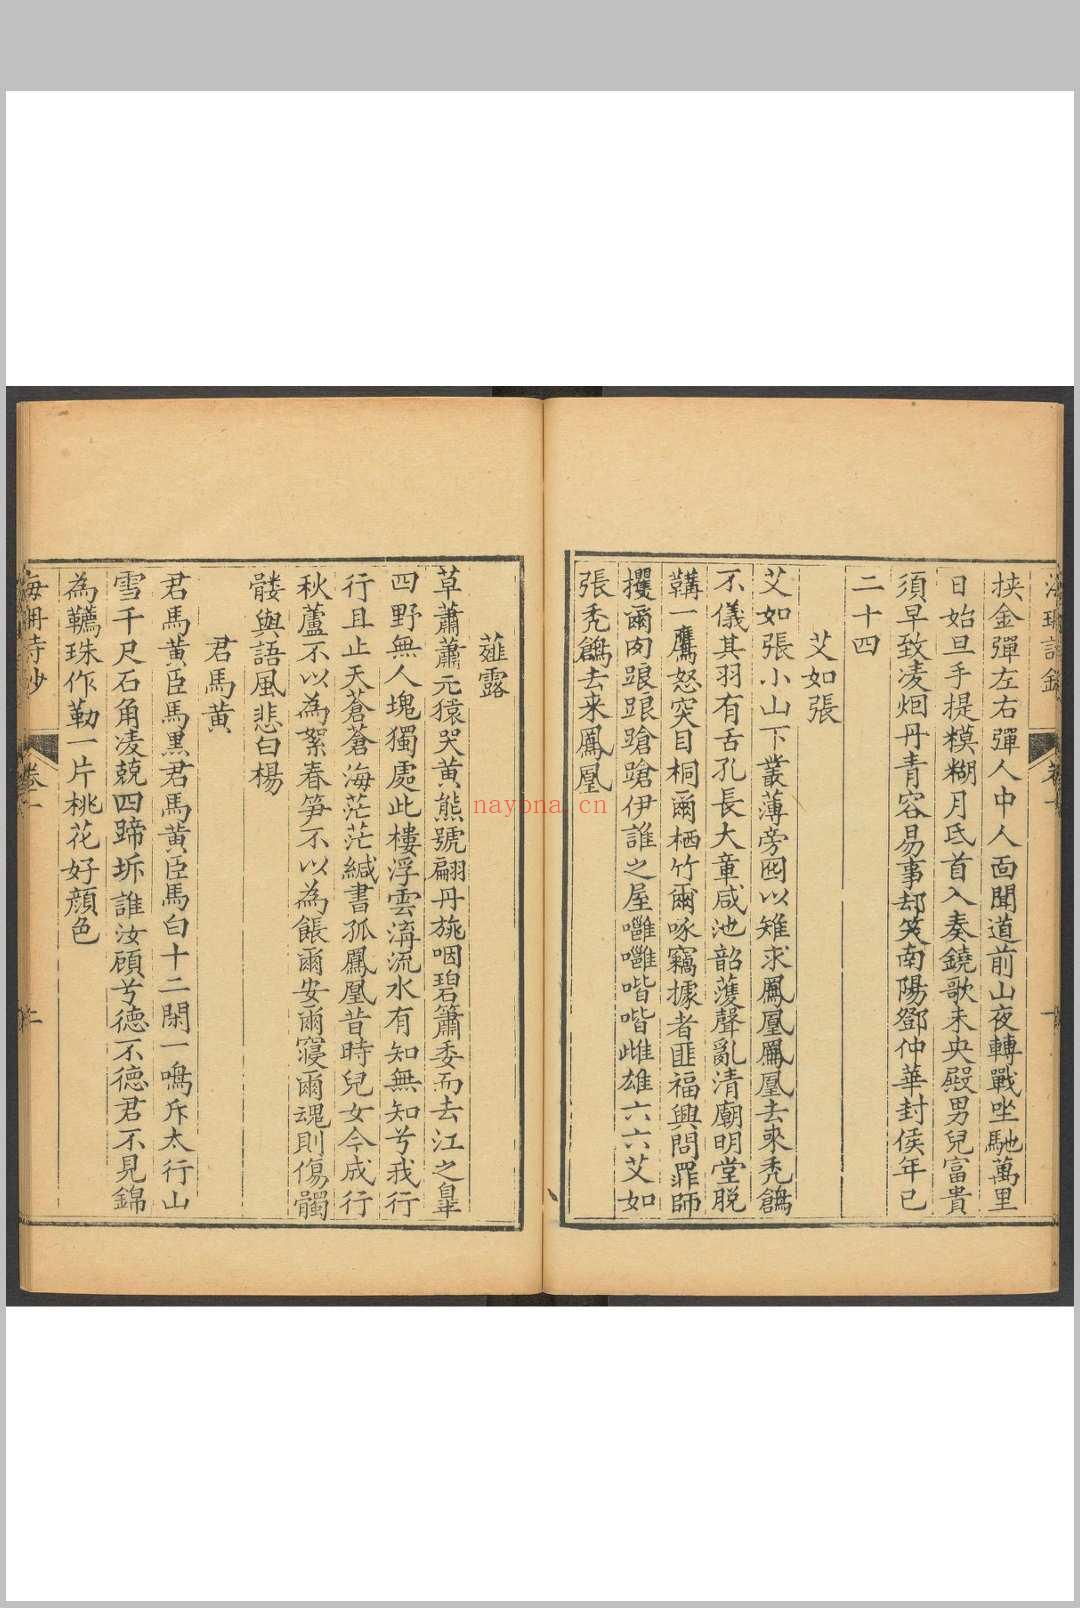 挾金彈左右彈人中人面聞道前山夜轉戰坐馳萬里
日始旦手提糢糊月氐首入奏鐃歌未央殿男兒富貴
須早致凌烟丹青容易事却笑南陽鄧仲華封侯年已
二十四
艾如張
艾如張小山下叢薄旁囮以雉求鳳凰鳳凰去來禿鶬
不儀其羽有舌孔長大章咸池韶濩聲亂清廟明堂脫
鞲一鷹怒突目桐爾栖竹爾啄竊據者匪福興問罪師
攫爾肉踉踉蹌蹌伊誰之屋嚾嚾喈喈雌雄六六艾如
張禿鶬去来鳳凰
薤露
草蕭蕭元猿哭黃熊號翩丹旐咽碧簫委而去江之皐
四野無人塊獨處此樓浮雲湝流水有知無知兮我行
行且止天蒼蒼海茫茫緘書孤鳳凰昔時兒女今成行
秋蘆不以為絮春笋不以為餦爾安爾寢爾魂則傷髑
髏與語風悲白楊
君馬黃
君馬黃臣馬黑君馬黃臣馬白十二閑一鳴斥太行山
雪千尺石角凌兢四蹄坼誰汝顧兮德不德君不見錦
為韉珠作勒一片桃花好顏色
卷一
二
nayona.cn